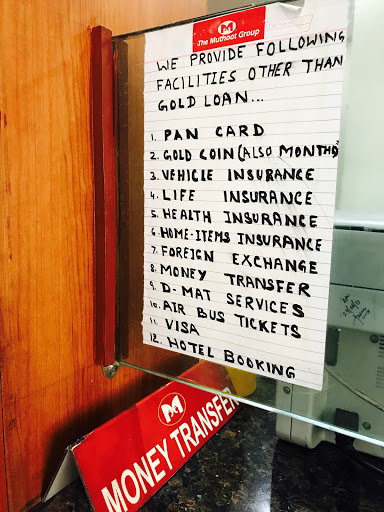 The Muthoot Group
WE PROVIDE FOLLOWING
FACILITIES OTHER THAN
GOLD LOAN...
1. PAN CARD
2. GOLD COIN (ALSO MONTHLY
3. VEHICLE INSURANCE
4. LIFE INSURANCE
5. HEALTH INSURANCE
6. HOME-ITEMS INSURANCE
7. FOREIGN EXCHANGE
8. MONEY TRANSFER
9. D-MAT SERVICES
10. AIR BUS TICKETS
11. VISA
12. HOTEL BOOKING
MONEY TRANSFER